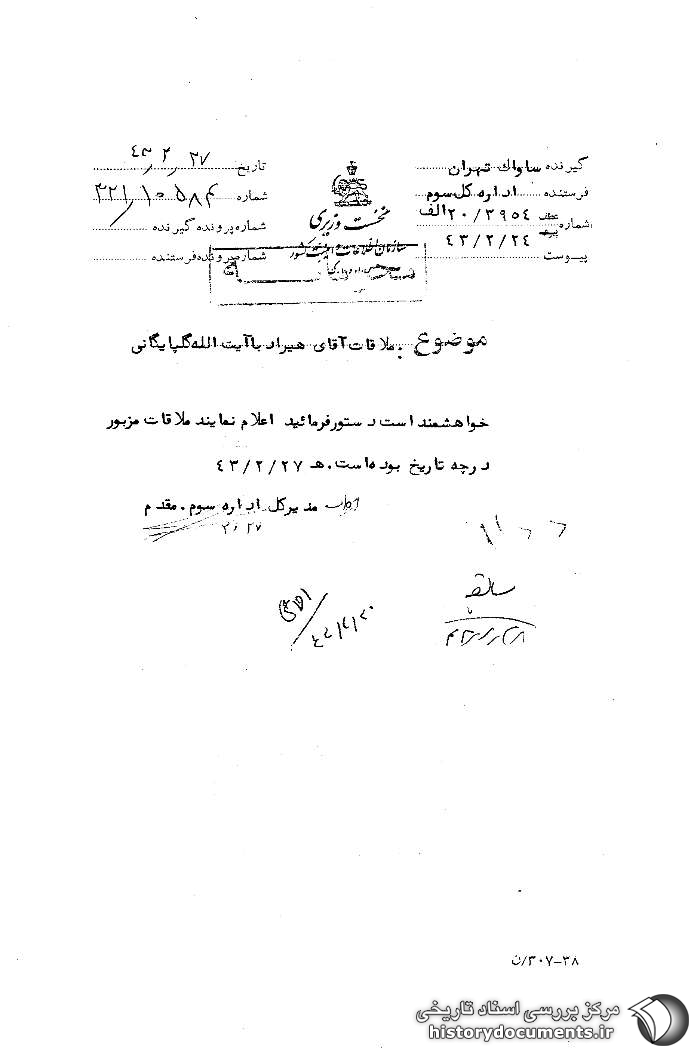 گیرنده ساواك تهران
فرستنده اداره کل سوم
شماره ۲۰/۳۹۵۴الف
۴۳/۲/۲۴
پیوست
نخست وزیری
سازمان اطلاعات و امنیت کشور
تاریخ ۴۳/۲/۲۷
شماره ۳۲۱/۱۰۵۸۴
شماره پرونده گیرنده
شماره پرونده فرستنده
موضوع: ملاقات آقای هیراد با آیت الله گلپایگانی
خواهشمند است دستور فرمائید اعلام نمایند ملاقات مزبور
در چه تاریخ بوده است. هـ ۴۳/۲/۲۷
مدیر کل اداره سوم. مقدم
۲/۲۷
سابقه
۴۳/۲/۲۸
۳۰۷-۳۸/ن
مرکز بررسی اسناد تاریخی
historydocuments.ir